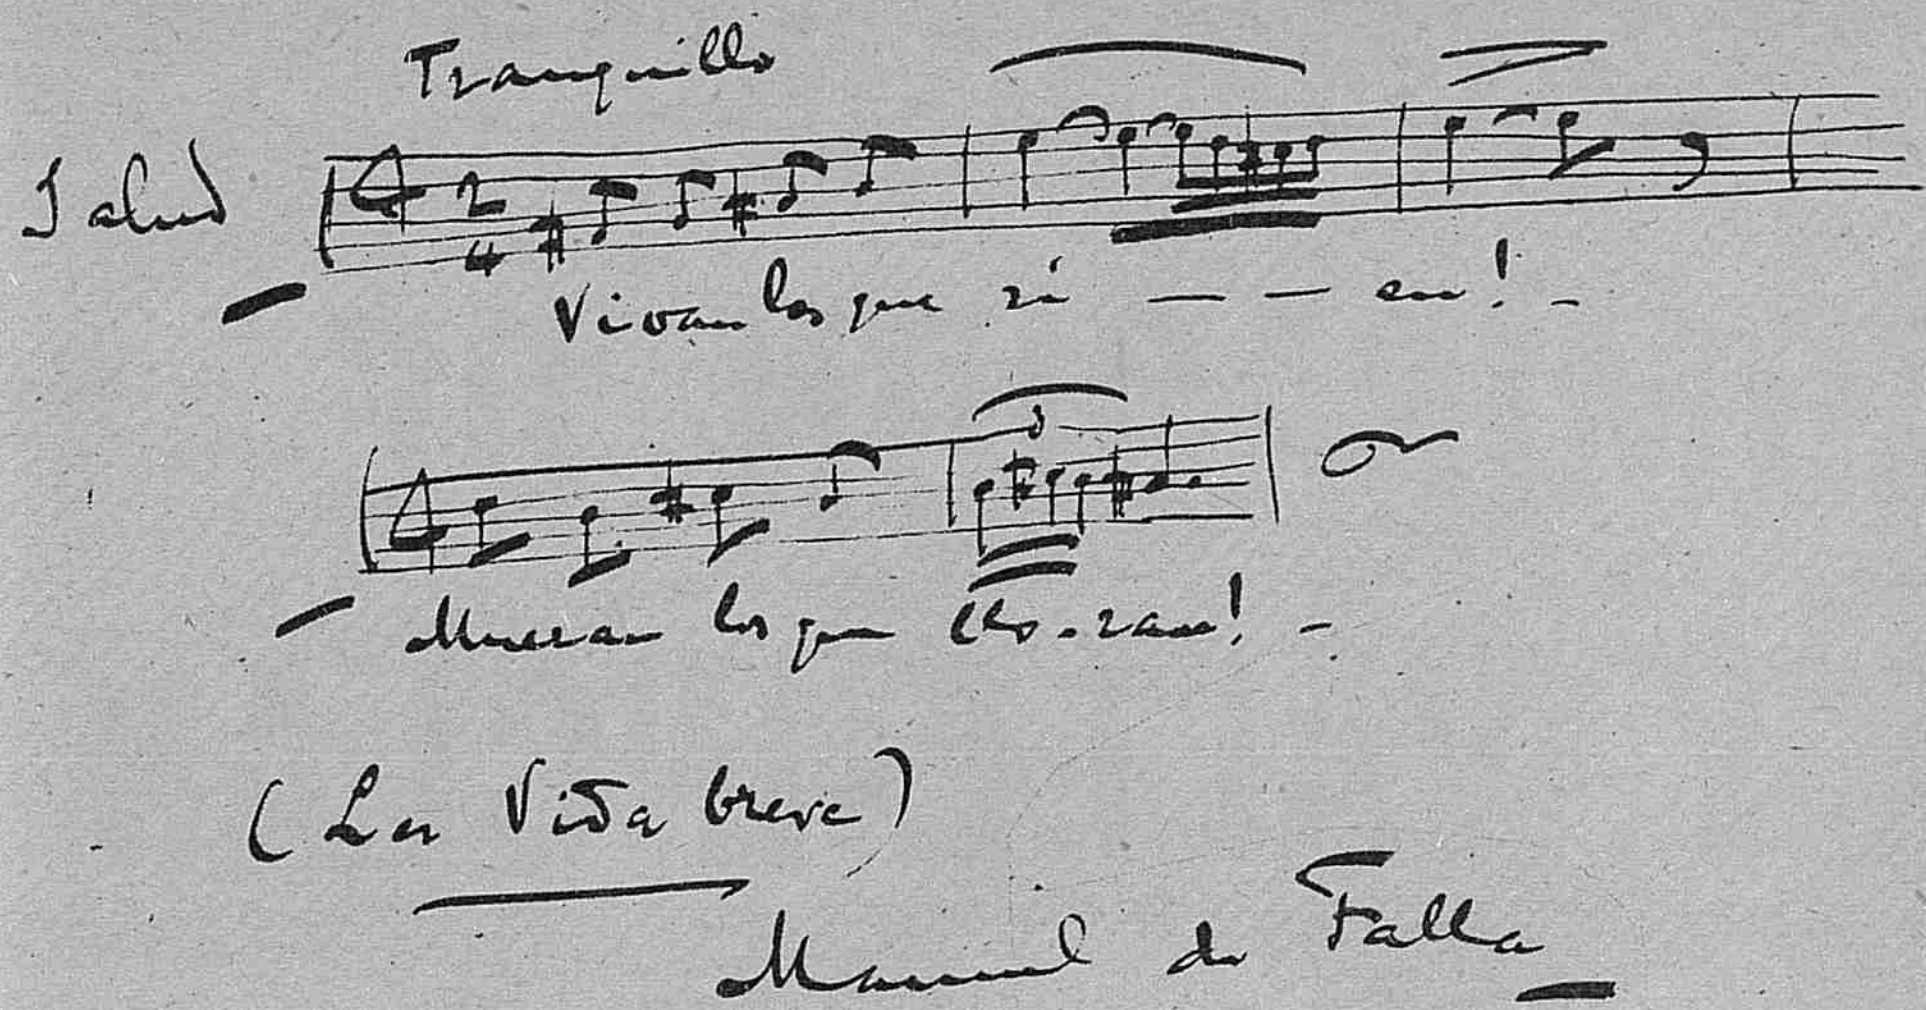 Tranquillo
Salud
2
4
Vivan los que rí — — en! -
3
Mueran los que llo-ran! -
(La Vida breve)
Manuel de Falla